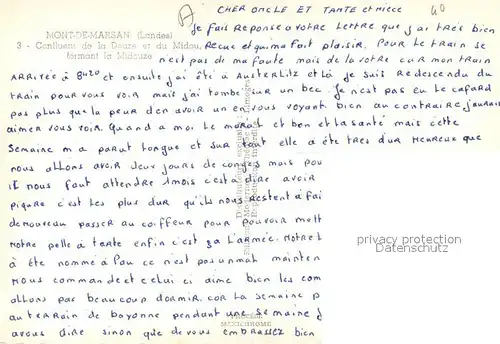 CHER ONCLE ET TANTE et NIECE
40
MONT-DE-MARSAN (Landes)
3 - Confluent de la Douze et du Midou,
formant la Midouze
Je fais REPONSE a votre LETTRE que j'ai très bien
REçue et qui ma fait plaisir. POUR le train se
n'est pas de ma faute mais de la votre car mon train
ARRIVÉE à 8H20 et ensuite j'ai été à AUSTERLITZ et Là je suis REdescendu du
train pour vous voir mais j'ai tombé sur un bec. Je n'est pas eu le cafard
pas plus que la peur d'en avoir un en vous voyant bien au contraire j'aurais
aimer vous voir. Quand a moi le moral et bon et la santé mais cette
Semaine m'a parut longue et sur tout elle a été tres dur HEUREUX que
nous allons avoir deux jours de congés mais pou
il nous faut attendre 1 mois c'est à dire avoir
piqure c'est les plus dur qu'ils nous restent à fai
de nouveau passer au coiffeur pour pouvoir mett
notre pelle à tarte enfin c'est ça l'armée. Notre L
à été nommé à Pau ce n'est pas un mal mainten
nous commande et celui ci aime bien les com
allons pas beaucoup dormir. car la semaine p
au terrain de bayonne pendant une semaine j
avous dire sinon que de vous embrassez bien
privacy protection
Delcampe.com
MEXICHROME